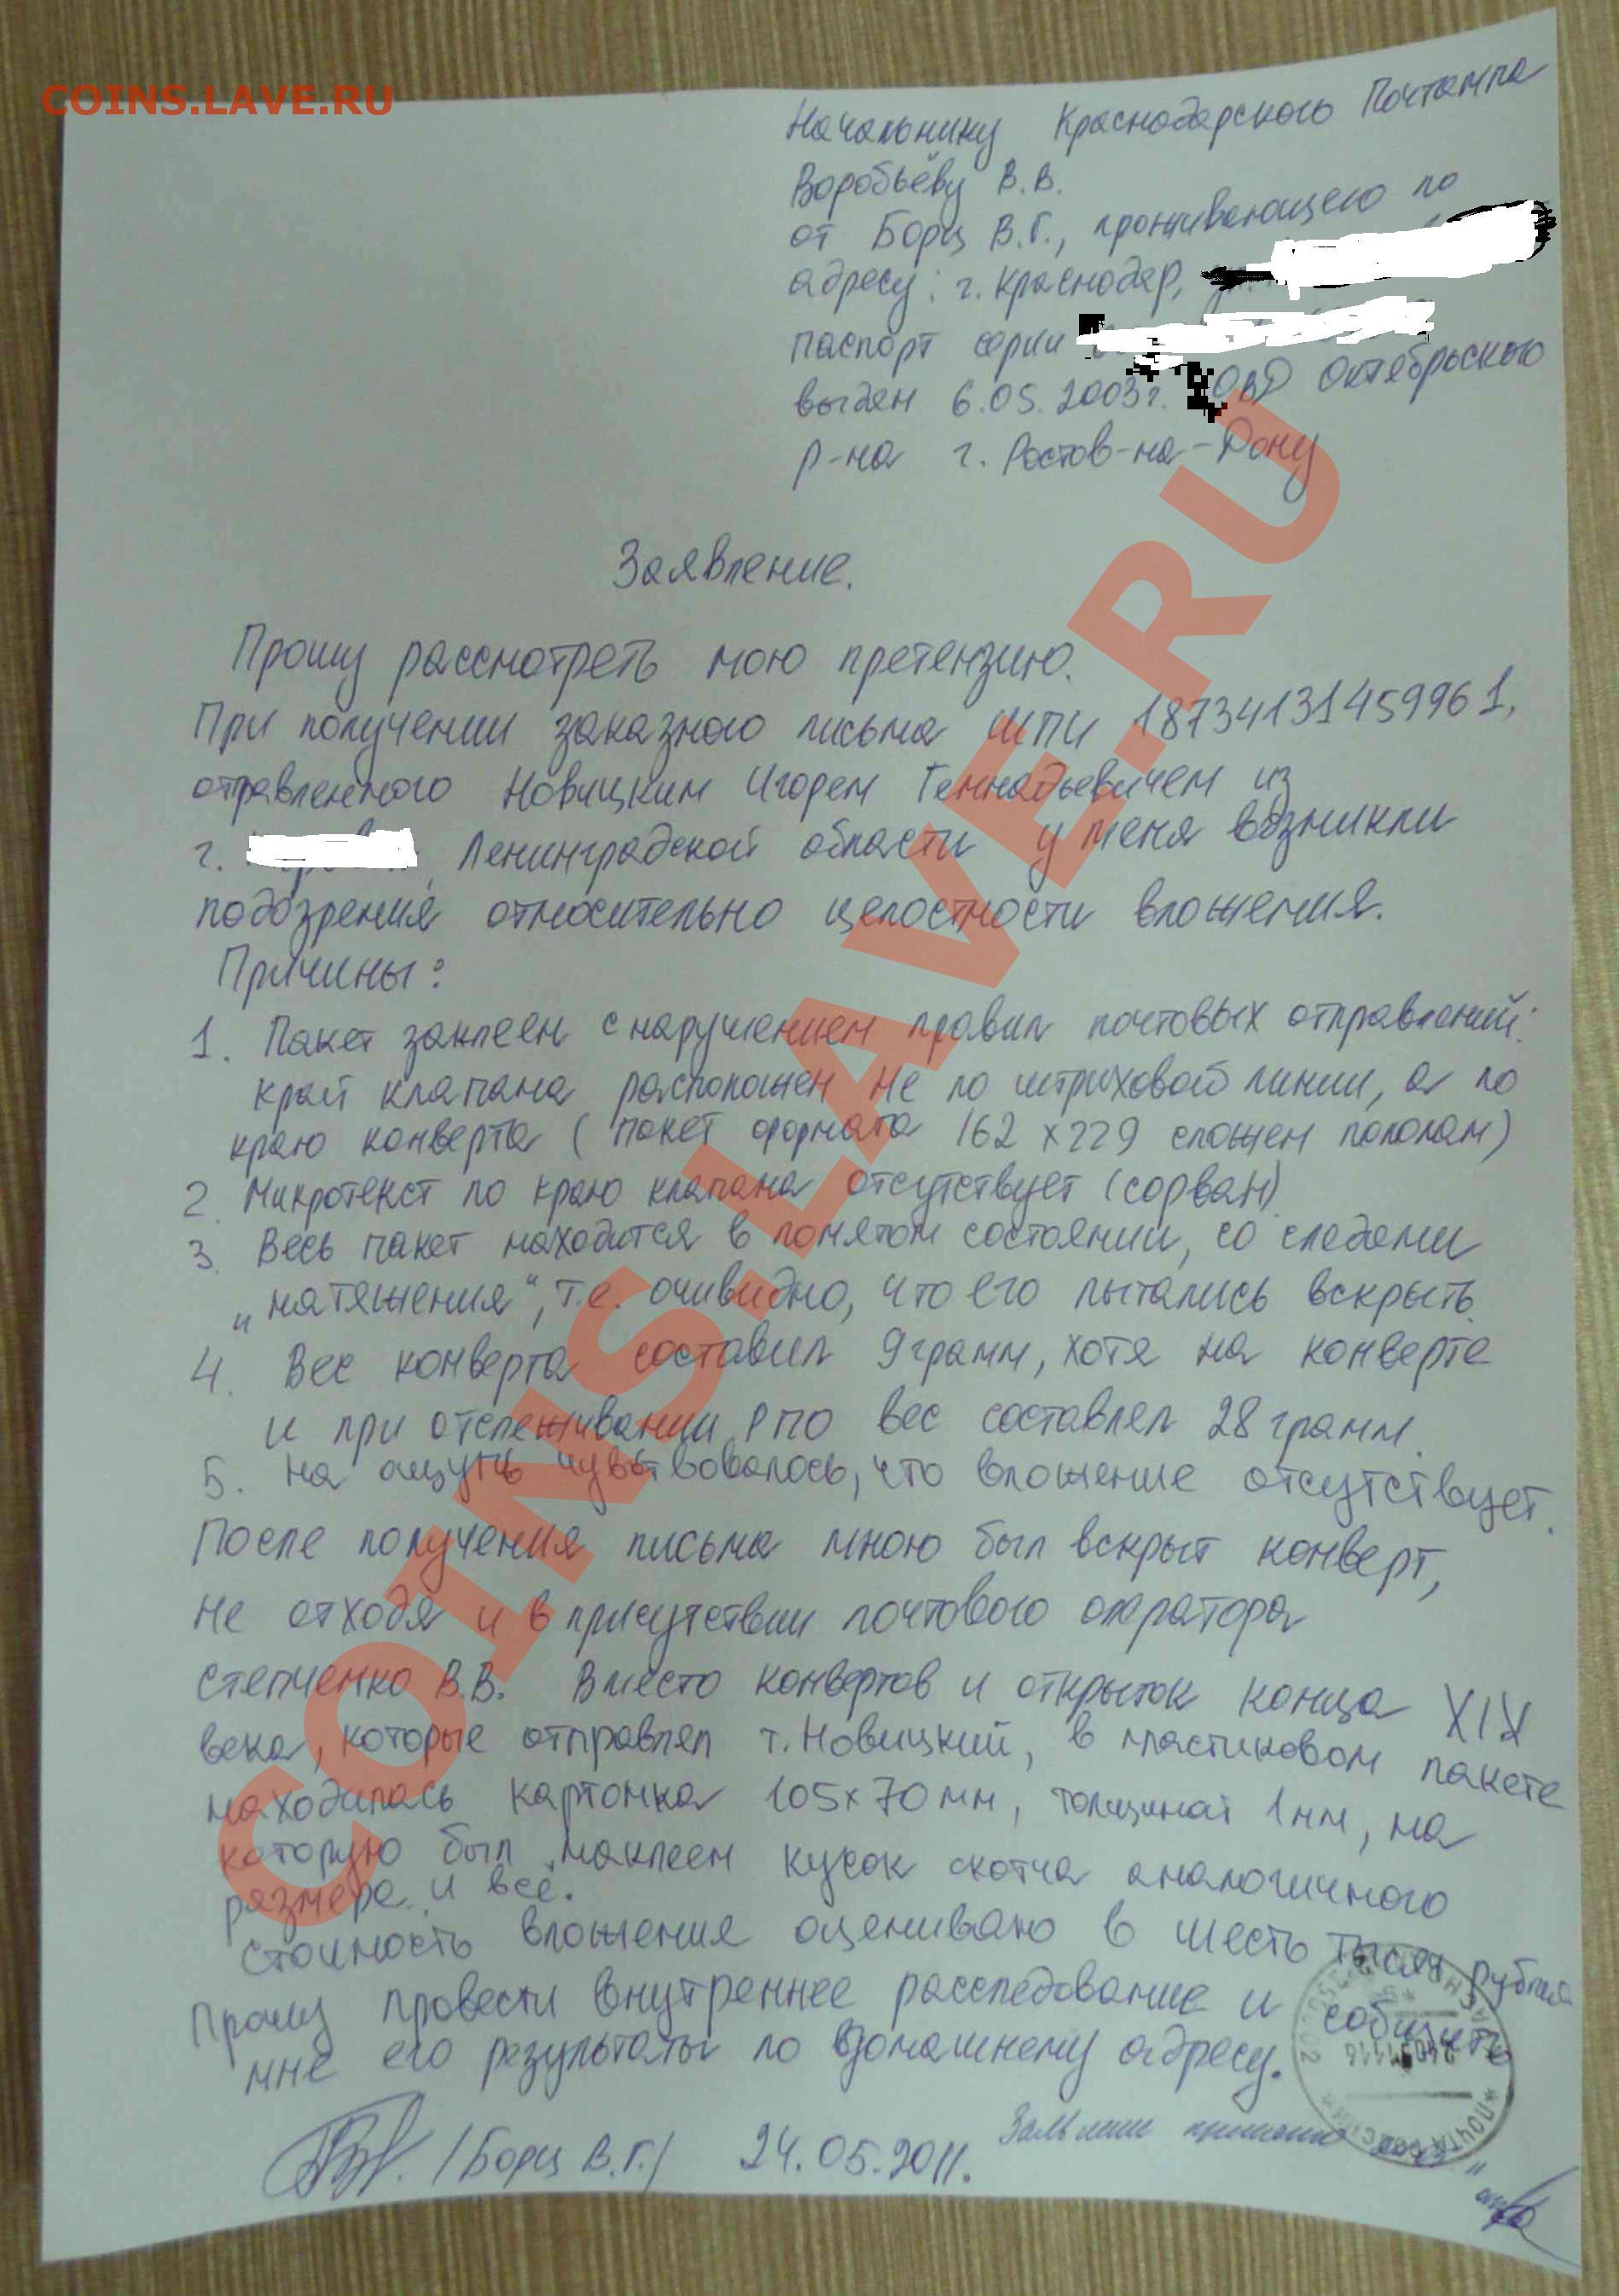 COINS.LAVE.RU
Начальнику Краснодарского Почтампа
Воробьёву В.В.
от Борц В.Г., проживающего по
адресу: г. Краснодар,
паспорт серии
выдан 6.05.2003г. ОВД Октябрьского
р-на г. Ростов-на-Дону
Заявление.
Прошу рассмотреть мою претензию.
При получении заказного письма ШПИ 18734131459961,
отправленного Новицким Игорем Геннадьевичем из
г. Ленинградской области у меня возникли
подозрения относительно целостности вложения.
Причины:
1. Пакет заклеен с нарушением правил почтовых отправлений:
край клапана расположен не по штриховой линии, а по
краю конверта (пакет формата 162 х 229 сложен пополам)
2. Микротекст по краю клапана отсутствует (сорван)
3. Весь пакет находится в помятом состоянии, со следами
„натяжения", т.е. очивидно, что его пытались вскрыть.
4. Вес конверта составил 9 грамм, хотя на конверте
и при отслеживании РПО вес составлял 28 грамм.
5. На ощупь чувствовалось, что вложение отсутствует.
После получения письма мною был вскрыт конверт,
не отходя и в присутствии почтового оператора
Степченко В.В. Вместо конвертов и открыток конца XIX
века, которые отправлял т. Новицкий, в пластиковом пакете
находилась картонка 105х70мм, толщиной 1мм, на
которую был наклеен кусок скотча аналогичного
размера и всё.
Стоимость вложения оцениваю в шесть тысяч рублей
Прошу провести внутреннее расследование и собщить
мне его результаты по домашнему адресу.
/Борц В.Г./ 24.05.2011.
Заявление принято
COINS.LAVE.RU